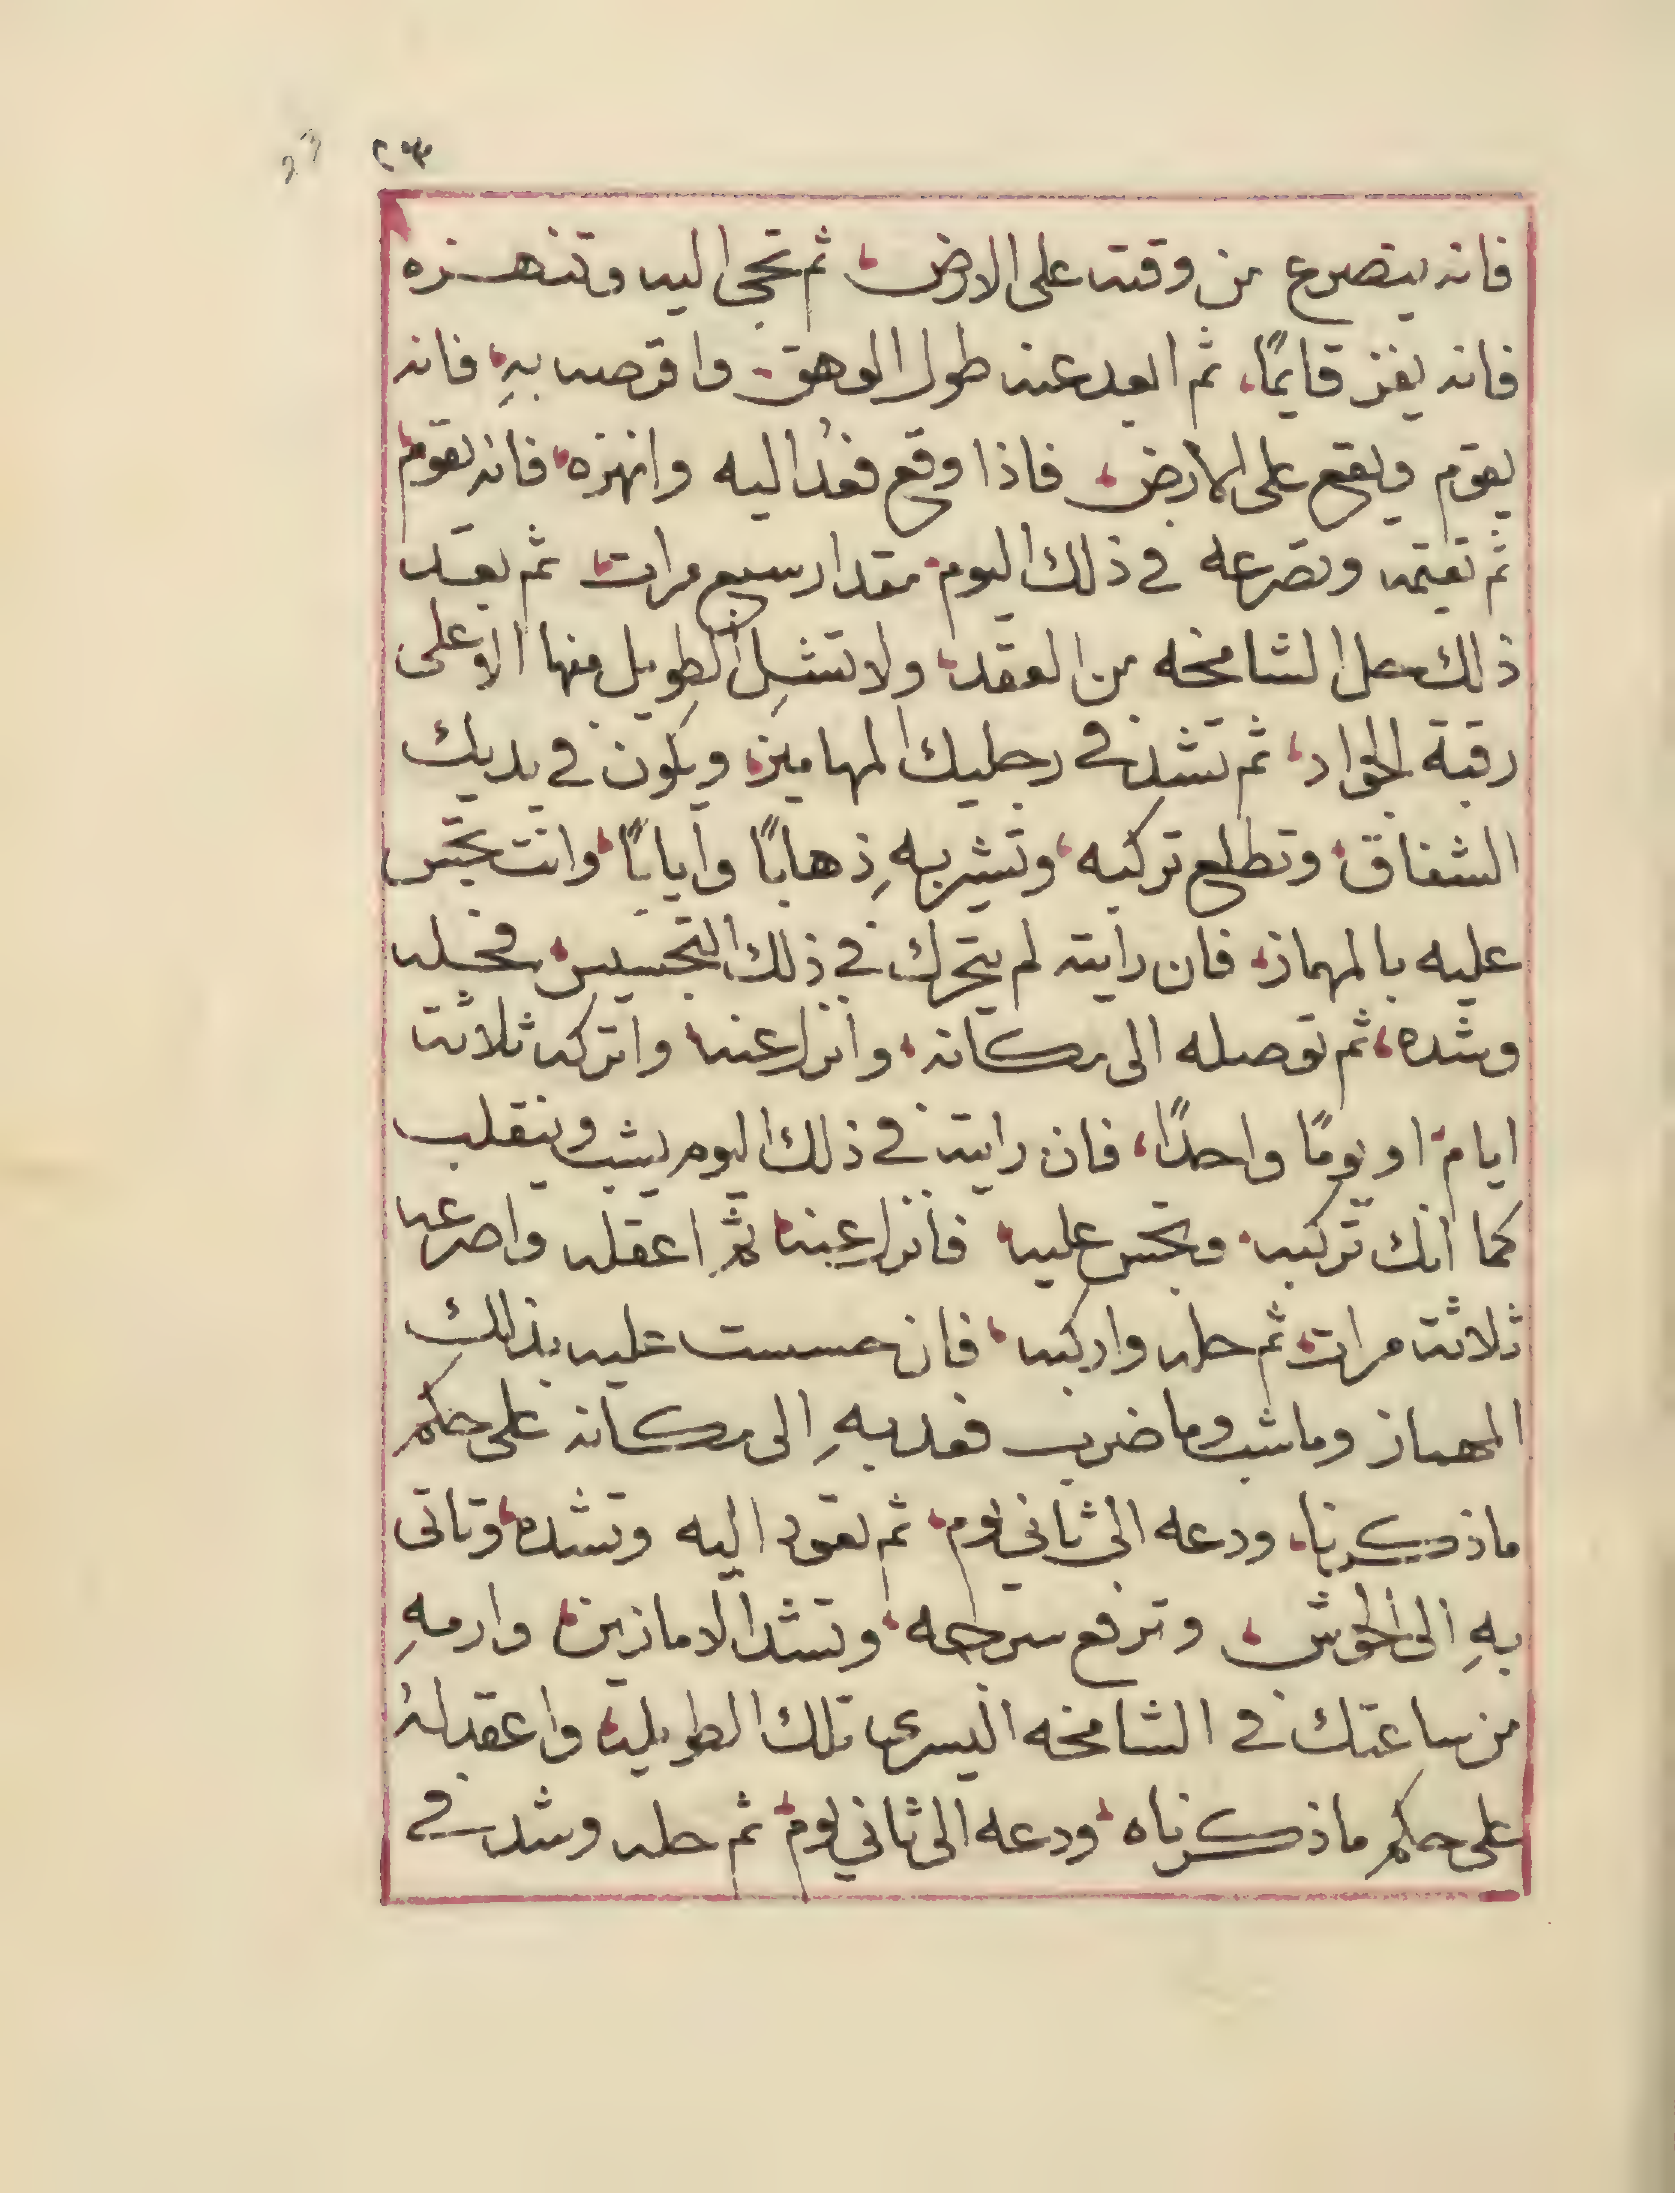 23 ٢٣
فانه يتصرع من وقته على الارض، ثم تجى اليه وتنهزه
فانه يفز قايمًا، ثم ابعد عنه طول الوهق، واقرصه بهِ، فانه
يقوم ويقع على الارض، فاذا وقع فعُد اليه وانهزه، فانه يقوم
ثم تقيمه وتصرعه في ذلك اليوم، مقدار سبع مرات، ثم بعد
ذلك حل الشامخه من العقد، ولا تشِل الطويل منها الا على
رقبة الجواد، ثم تشد في رجليك المهاميز، ويكون في يديك
الشفاق، وتطلع تركبه، وتشير بهِ ذهابًا وايابًا، وانت تجس
عليه بالمهماز، فان رايته لم يتحرك في ذلك التجسيس، فخله
وشده، ثم توصله الى مكانه، وانزل عنه، واتركه ثلاثة
ايام، او يومًا واحدًا، فان رايته في ذلك اليوم يشب وينقلب
كما انك تركبه، وتجس عليه، فانزل عنه، ثم اعقله واصرعه
ثلاثة مرات، ثم حله واركبه، فان حسست عليه بذلك
المهماز وما شب وما ضرب فعد بهِ الى مكانه على حكم
ما ذكرنا، ودعه الى ثاني يوم، ثم تعود اليه وتشده، وتاتى
بهِ الى الحوش، وترفع سرجه، وتشد الامازين، وارمهِ
من ساعتك في الشامخه اليسرى، تلك الطويله، واعقله
على حكم ما ذكرناه، ودعه الى ثاني يوم، ثم حله وشد في